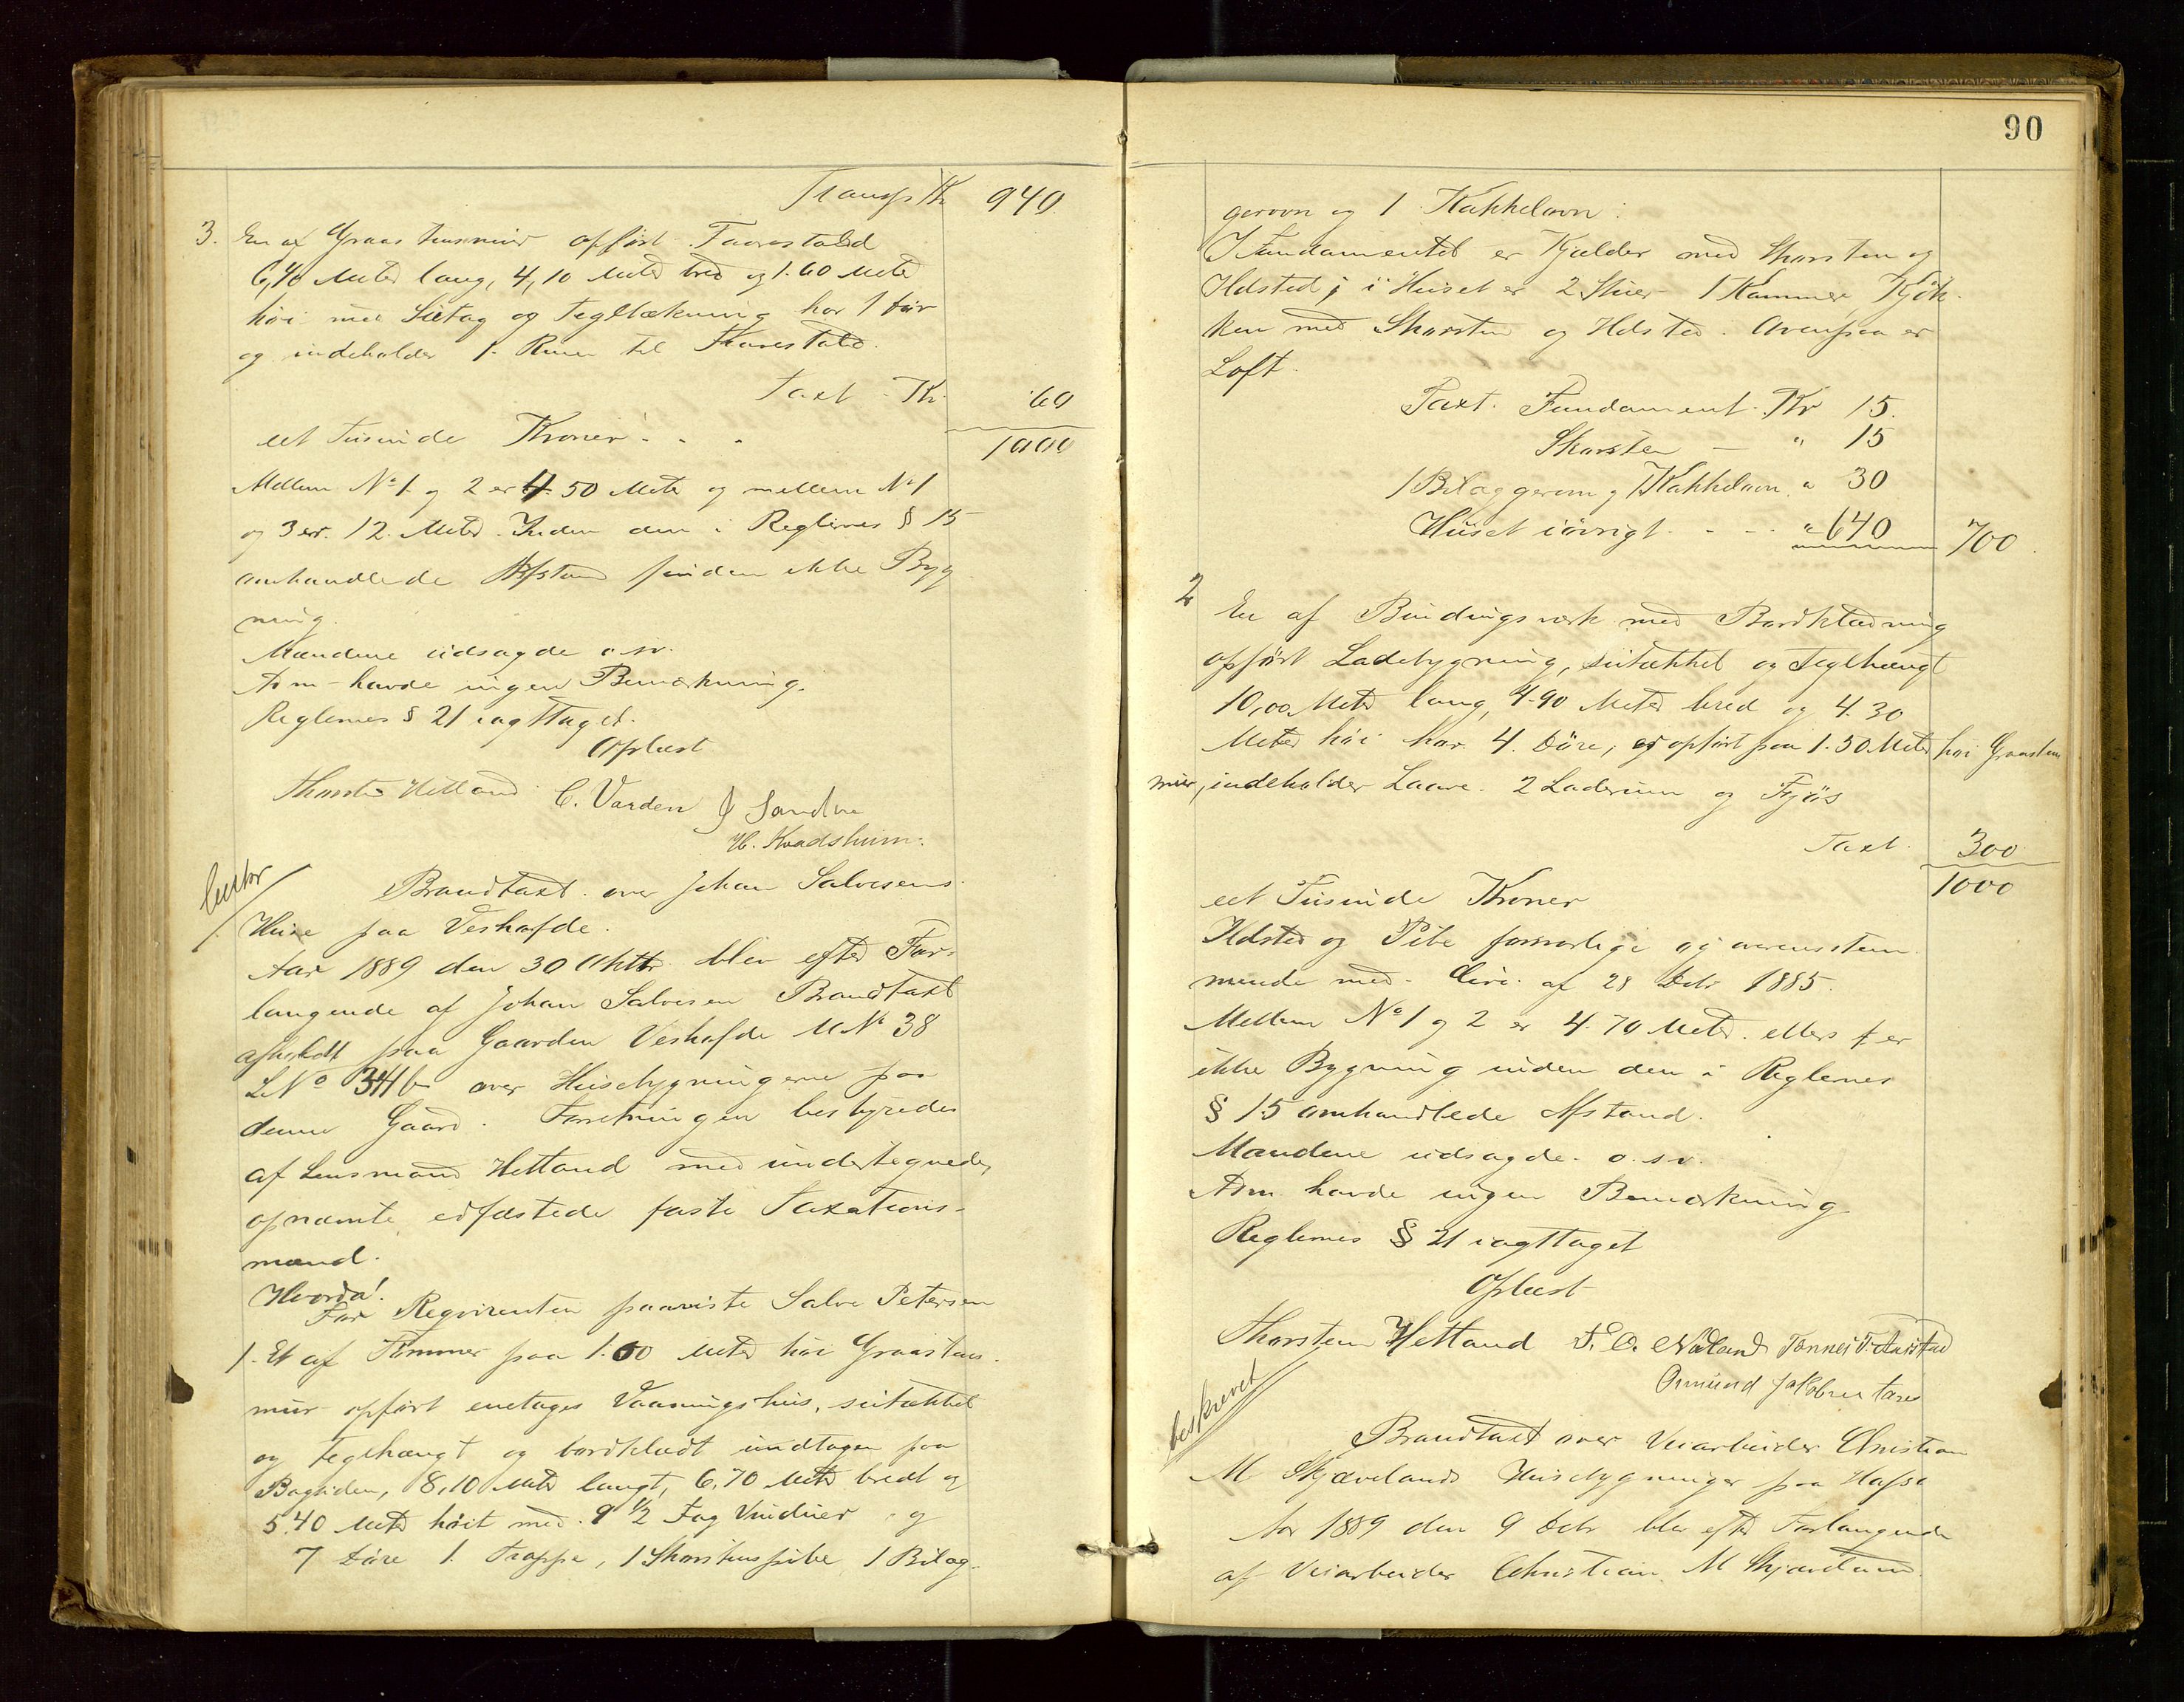 Transp Kr 940
3. En af Graastensmur opført Faarestald
6,40 Meter lang, 4,10 Meter bred og 1.60 Meter
høi med Sutag og Tegltækning har 1 Dør
og indeholder 1. Rum til Faarestald.
Taxt - Kr. 60
eet Tusinde Kroner - - - 1000
Mellem No 1. og 2 er 4.50 Meter og mellem No 1
og 3 er 12 Meter. Inden den i Reglernes § 15
omhandlede Afstand findes ikke Byg
ning.
Mændene udsagde o.sv.
Adm - havde ingen Bemærkning.
Reglernes § 21 iagttaget.
Oplæst
Thorsten Hetland C. Varden J Sandve
H. Kvadsheim.
Brandtaxt over Johan Salvesens
Huse paa Veshafde.
Aar 1889 den 30 Oktbr. blev efter For-
langende af Johan Salvesen Brandtaxt
afholdt paa Gaarden Veshafde M No 38
L No 34 b over Husebygningerne paa
denne Gaard. Forretningen bestyredes
af Lensmand Hetland med undertegnede,
opnævnte edfæstede faste Taxations-
mænd.
Hvorda!
For Reqvirenten paaviste Salve Petersen
1. Et af Tømmer paa 1.00 Meter høi Graastens-
mur opført enetages Vaaningshus, sutækket
og teglhængt og bordklædt undtagen paa
Bagsiden, 8,10 Meter langt, 6,70 Meter bredt og
5.40 Meter høit med 9 1/2 Fag Vinduer og
7 Døre 1. Trappe, 1 Skorstenspibe 1 Bilæg-
90
gerovn og 1 Kakkelovn.
I Fundamentet er Kjelder med Skorsten og
Ildsted; i Huset er 2 Stuer 1 Kammer, Kjøk-
ken med Skorsten og Ildsted. Ovenpaa er
Loft.
Taxt. Fundament. Kr 15.
Skorsten - " 15
1 Bilæggerovn og 1 Kakkelovn " 30
Huset iøvrigt - - - " 640 700
2 En af Bindingsverk med Bordklædning
opført Ladebygning, sutækket og teglhængt
10,00 Meter lang, 4.90 Meter bred og 4.30
Meter høi har 4. Døre, er opført paa 1.50 Meter høi Graastens
mur, indeholder Laave. 2 Laderum og Fjøs
Taxt. 300
eet Tusinde Kroner 1000
Ildsted og Pibe forsvarlige og overensstem
mende med Circ. af 28 Debr 1885.
Mellem No 1 og 2 er 4.70 Meter. ellers er
ikke Bygning inden den i Reglernes
§ 15 omhandlede Afstand.
Mændene udsagde o.sv.
Adm. havde ingen Bemærkning
Reglernes § 21 iagttaget
Oplæst
Thorsten Hetland
beskrevet
Brandtaxt over Veiarbeider Christian
M Skjævelands Husebygninger paa
Aar 1889 den 9 Debr blev efter Forlangende
af Veiarbeider Christian M Skjæveland